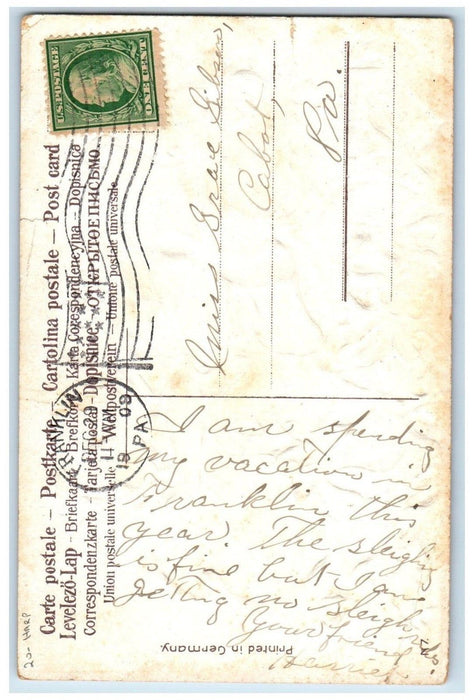 U.S. POSTAGE
ONE CENT
Carte postale – Postkarte – Cartolina postale – Post card
Levelező-Lap – Briefkaart – Brefkort – Karta Corespondencyjna – Dopisnica
Correspondenzkarte – Tarjeta postal – Dopisnice – ОТКРЫТОЕ ПИСЬМО
Union postale universelle – Weltpostverein – Unione postale universale
FRANKLIN
DEC 30
11 AM
1909
PA.
Miss Grace Gibson,
Cabot,
Pa.
I am spending
my vacation in
Franklin this
year. The sleighing
is fine but I am
getting no sleigh rides.
Your friend
Harriet
Printed in Germany
20- HARP